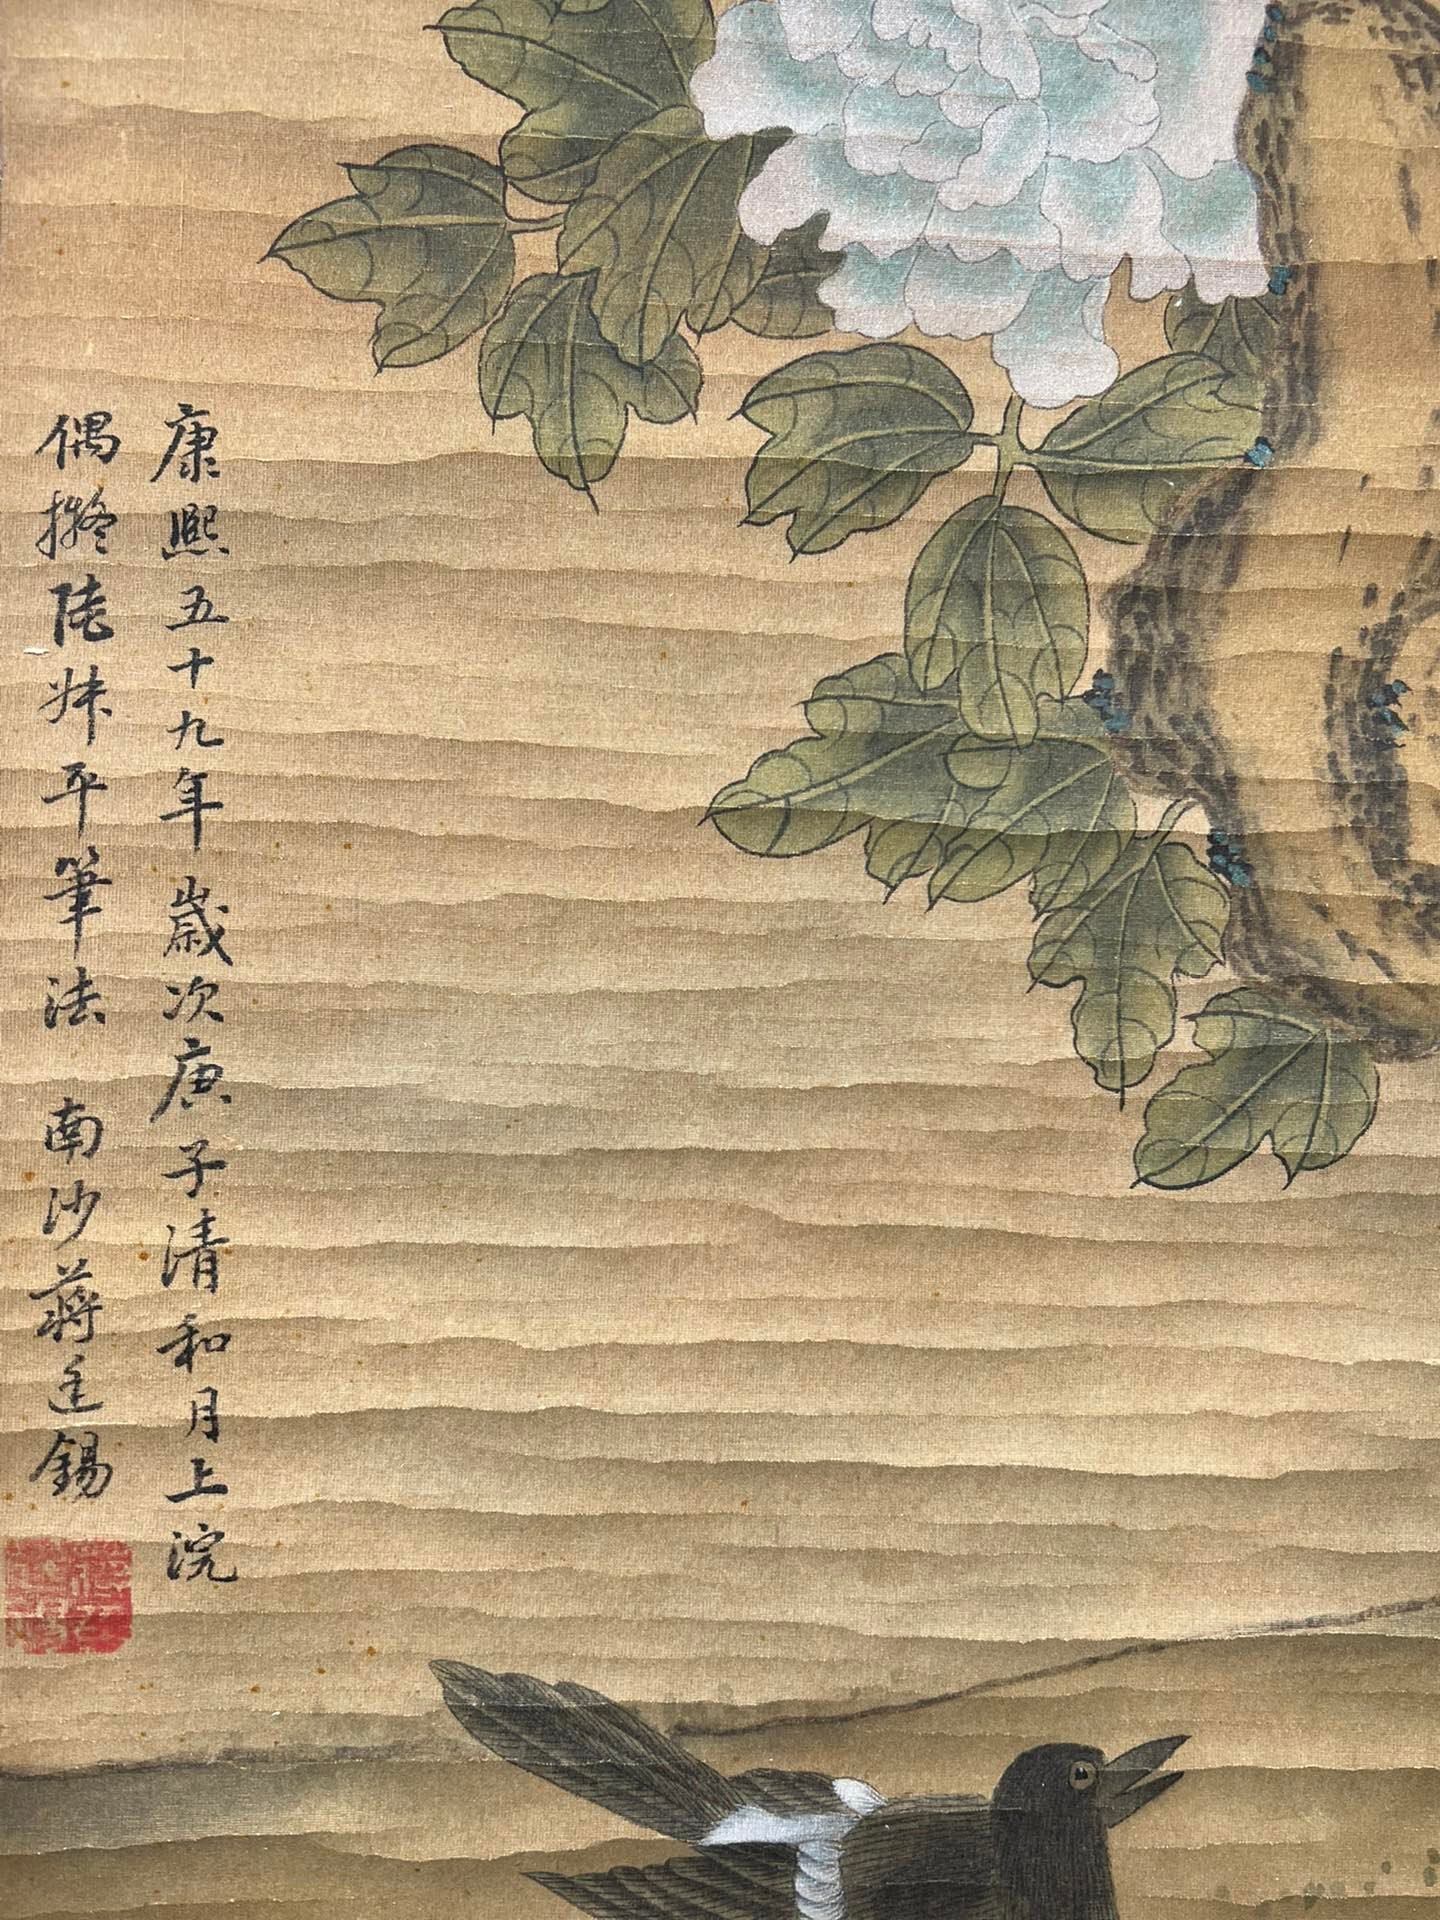 康熙五十九年歲次庚子清和月上浣
偶擬陸妹平筆法 南沙蔣廷錫